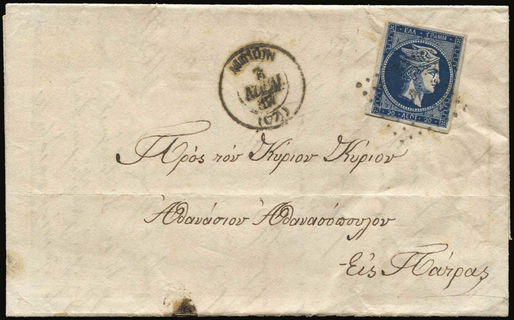 ΕΛΛ. ΓΡΑΜΜ.
20 ΛΕΠΤ. 20
Πρὸς τὸν Κύριον Κύριον
Ἀθανάσιον Ἀθανασόπουλον
Εἰς Πάτρας